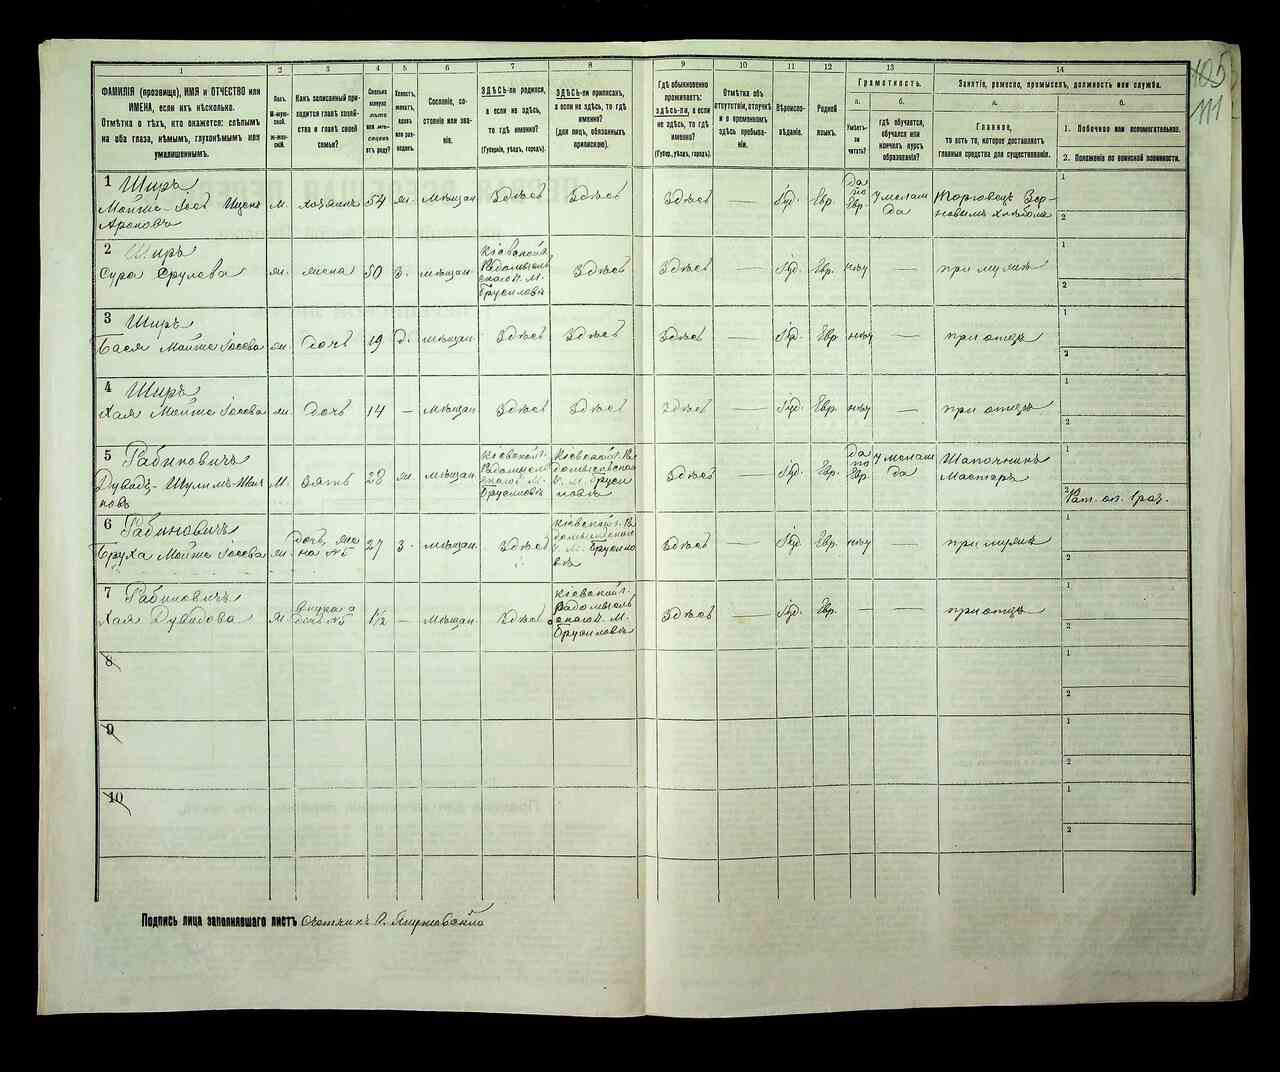 105
111
1
2
3
4
5
6
7
8
9
10
11
12
13
14
ФАМИЛІЯ (прозвище), ИМЯ и ОТЧЕСТВО или ИМЕНА, если ихъ нѣсколько.
Отмѣтка о тѣхъ, кто окажется: слѣпымъ на оба глаза, нѣмымъ, глухонѣмымъ или умалишеннымъ.
Полъ.
М-муж-
ской.
Ж-жен-
скій.
Какъ записанный при-
ходится главѣ хозяй-
ства и главѣ своей
семьи?
Сколько
минуло
лѣтъ
или мѣ-
сяцевъ
отъ роду?
Холостъ,
женатъ,
вдовъ
или раз-
веденъ.
Сословіе, со-
стояніе или зва-
ніе.
ЗДѢСЬ-ли родился,
а если не здѣсь,
то гдѣ именно?
(Губернія, уѣздъ, городъ).
ЗДѢСЬ-ли приписанъ,
а если не здѣсь, то гдѣ
именно?
(для лицъ, обязанныхъ
припискою).
Гдѣ обыкновенно
проживаетъ:
здѣсь-ли, а если
не здѣсь, то гдѣ
именно?
(Губер., уѣздъ, городъ).
Отмѣтка объ
отсутствіи, отлучкѣ
и о временномъ
здѣсь пребыва-
ніи.
Вѣроиспо-
вѣданіе.
Родной
языкъ.
Грамотность.
а.
б.
Умѣетъ-
ли
читать?
гдѣ обучается,
обучался или
кончилъ курсъ
образованія?
Занятіе, ремесло, промыселъ, должность или служба.
а.
б.
Главное,
то есть то, которое доставляетъ
главныя средства для существованія.
1. Побочное или вспомогательное.
2. Положеніе по воинской повинности.
1 Ширъ
Мойше-Іосъ Ицекъ
Ароновъ
М. хозяинъ 54 ж. мѣщан. Здѣсь Здѣсь Здѣсь — Іуд. Евр. да по Евр. у мелам да Торговецъ Зер-
новымъ хлѣбомъ
1
2
2 Ширъ
Сура Срулева ж. жена 50 з. мѣщан. Кіевской г. Радомысль скаго у. М. Брусиловъ Здѣсь Здѣсь — Іуд. Евр. нѣт — при мужѣ
1
2
3 Ширъ
Бася Мойше Іосева ж. дочь 19 д. мѣщан. Здѣсь Здѣсь Здѣсь — Іуд. Евр. нѣт — при отцѣ
1
2
4 Ширъ
Хая Мойше Іосева ж. дочь 14 — мѣщан. Здѣсь Здѣсь Здѣсь — Іуд. Евр. нѣт — при отцѣ
1
2
5 Рабиновичъ
Дувидъ-Шулимъ-
М. зять 28 ж. мѣщан. Кіевской г. Радомысль скаго у. М. Брусиловъ Кіевской г. Ра домысльска у. М. Бруси ловъ Здѣсь — Іуд. Евр. да по Евр. у мелам да Шапочникъ
Мастеръ
1
2 Рат. оп. 1 раз.
6 Рабиновичъ
Бруха Мойше Іосева ж. дочь же на №5 27 з. мѣщан. Здѣсь Кіевской г. Ра домысльска у. М. Брусило въ Здѣсь — Іуд. Евр. нѣт — при мужѣ
1
2
7 Рабиновичъ
Хая Дувидова ж. внучка дочь №5 1½ — мѣщан. Здѣсь Кіевской г. Радомысль скаго у. М. Брусиловъ Здѣсь — Іуд. Евр. — — при отцѣ
1
2
8
1
2
9
1
2
10
1
2
Подпись лица заполнявшаго листъ Счетчикъ